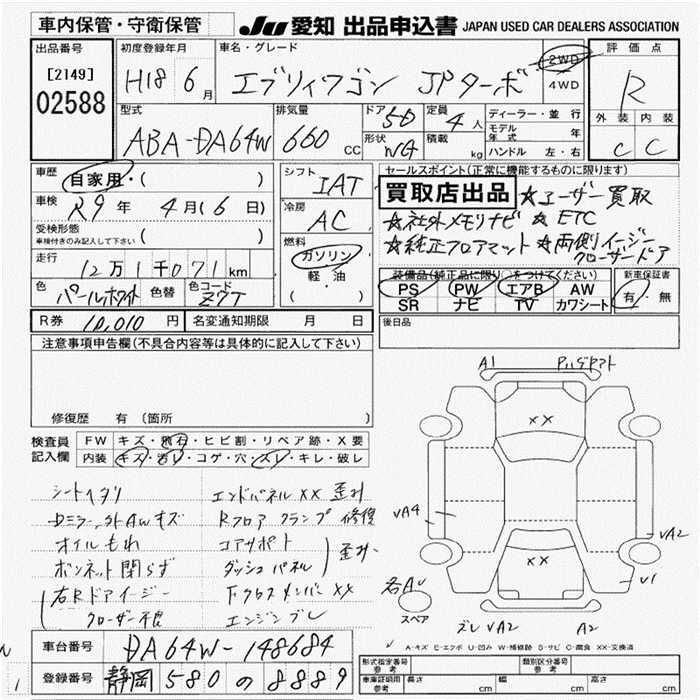 車内保管・守衛保管
JU 愛知 出品申込書 JAPAN USED CAR DEALERS ASSOCIATION
出品番号
[2149]
02588
初度登録年月
H18 6月
車名・グレード
エブリィワゴン JPターボ
2WD
4WD
評価点
R
外装 内装
C C
型式
ABA-DA64W
排気量
660 cc
ドア 5D
形状 WG
定員 4人
積載 kg
ディーラー・並行
モデル年式 年
ハンドル 左・右
車歴
自家用・( )
車検
R9年 4月(6日)
受検形態
車検付きのみ記入して下さい ( )
走行
12万1千071km
色
パールホワイト
色替
色コード
Z7T
シフト
IAT
冷房
AC
燃料
ガソリン
軽・油
( )
セールスポイント(正常に機能するものに限ります)
買取店出品 ☆ユーザー買取
☆社外メモリナビ ☆ETC
☆純正フロアマット ☆両側イージー
クローザードア
装備品(純正品に限り○をつけてください)
PS PW エアB AW
SR ナビ TV カワシート
新車保証書
有・無
R券 10,010円
名変通知期限 月 日
後日品
注意事項申告欄(不具合内容等は具体的に記入して下さい)
修復歴 有(箇所
検査員
記入欄
FW キズ・飛石・ヒビ割・リペア跡・X要
内装 キズ・汚レ・コゲ・穴・スレ・キレ・破レ
シートヘタリ
エンドパネル XX 歪み
Dミラー、外AWキズ
Rフロア クランプ 修復
オイルもれ
コアサポート
ボンネット閉らず
ダッシュパネル
歪み
右Rドアイージー
クローザー不良
Fクロスメンバー XX
エンジンブレ
A1
XX
VA4
VA2
XX
V1
右AU
スペア
ズレ VA2
A2
A-キズ E-エクボ U-凹み W-補修跡 S-サビ C-腐食 XX-交換済
車台番号
DA64W-148684
登録番号
静岡 580 の 8889
形式指定番号
参考
類別区分番号
参考
車庫証明用
参考
長さ cm
幅 cm
高さ cm